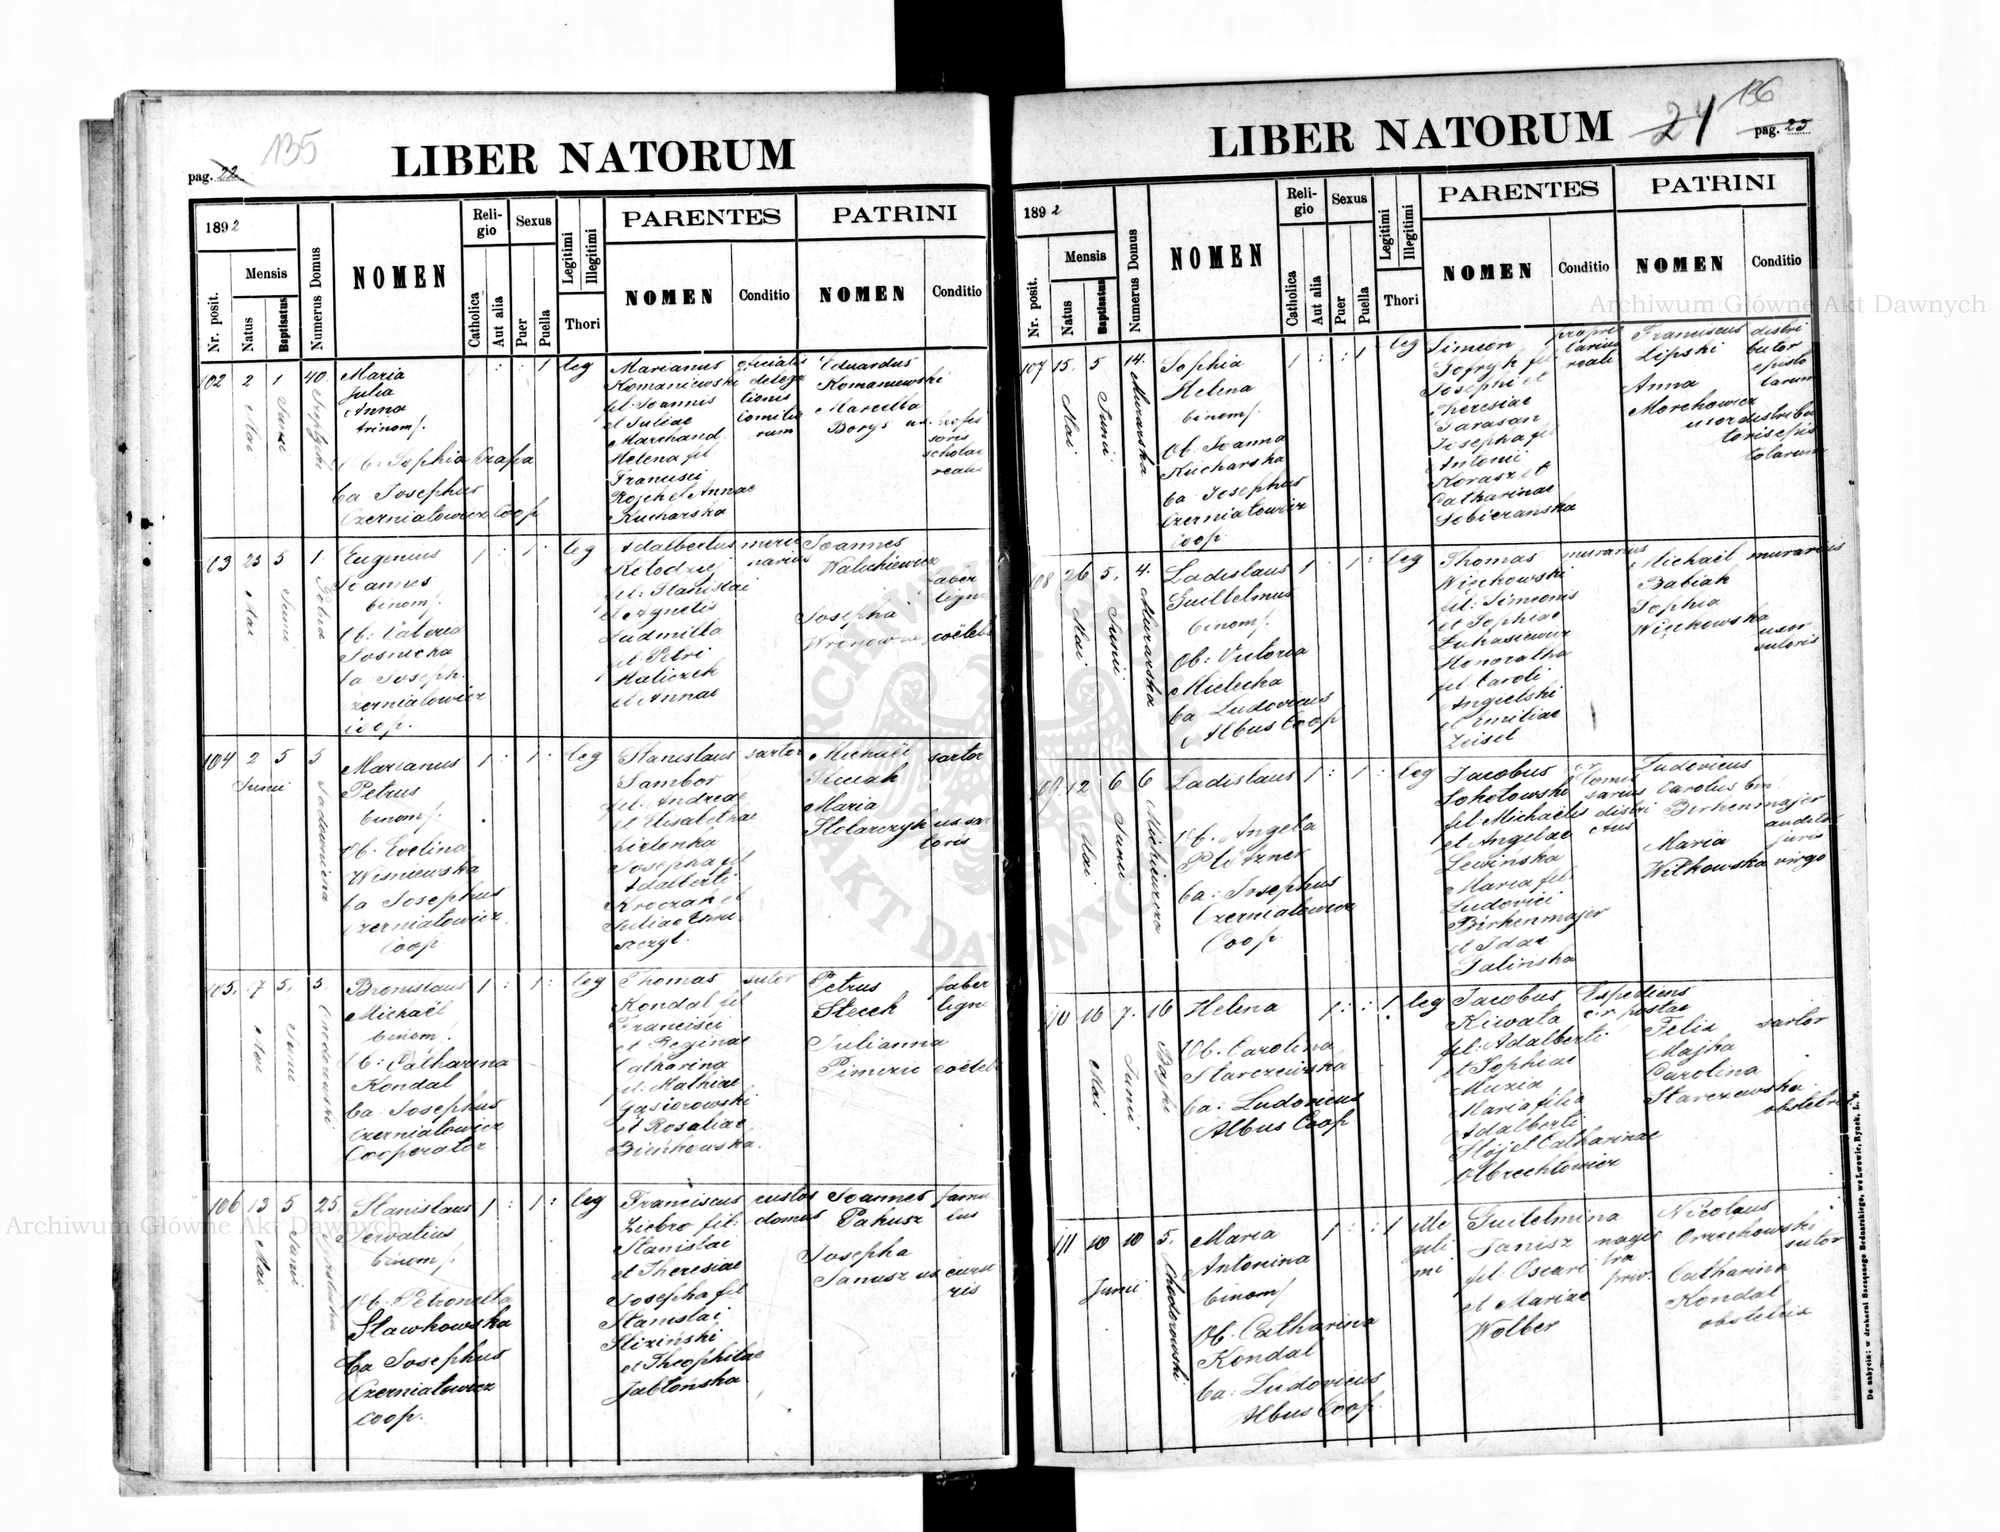 135
pag. 22
LIBER NATORUM
1892
Nr. posit.
Mensis
Natus
Baptisatus
Numerus Domus
NOMEN
Religio
Catholica
Aut alia
Sexus
Puer
Puella
Legitimi
Illegitimi
Thori
PARENTES
NOMEN
Conditio
PATRINI
NOMEN
Conditio
102 2 1 40
Mai
Maria
Julia
Anna
trinom/.
Ob: Sophia Krapa
ba Josephus
Czerniatowicz Coop
1 leg
Marianus
Romaniewski
fil: Joannis
et Juliae
Marchand
Helena fil
Francisci
et Annae
Kucharska
Eduardus
Romaniewski
Marcella
Borys ux. profes
soris
scholae
realis
103 23 5 1
Mai
Junii
Eugenius
Joannes
binom/.
Ob: Valeria
Sosnicka
ba: Joseph.
Czerniatowicz
coop.
1 : 1 : leg
Adalbertus
Kołodziej
fil: Stanislai
et Agnetis
Ludmilla
fil Petri
Haliczek
et Annae
merce
narius
Joannes
Walichiewicz
faber
lign
Josepha
coëlebs
104 2 5 5
Junii
Marianus
Petrus
binom/.
Ob. Evelina
Wisniewska
ba Josephus
Czerniatowicz
Coop
1 : 1 : leg
Stanislaus
Sambor
fil. Andreae
et Elisabethae
Zielonka
Josepha fil
Adalberti
Kroczak et
Juliae
sartor
Michaël
Maria
Stolarczyk ux sar
toris
sartor
105. 7 5. 5.
Mai
Junii
Bronislaus
Michaël
binom/.
Ob: Catharina
Kondal
ba: Josephus
Czerniatowicz
Cooperator
1 : 1 : leg
Thomas
Kondal fil
Francisci
et Reginae
Catharina
fil: Mathiae
Gąsiorowski
et Rosaliae
Bieńkowska.
sutor
Petrus
Steceh
Julianna
Pimczic
faber
lign
coëlebs
106 13 5 25.
Mai
Junii
Stanislaus
Servatius
binom/.
Ob: Petronella
Sławkowska
ba Josephus
Czerniatowicz
coop.
1 : 1 : leg
Franciscus
Ziebro fil:
Stanislai
et Theresiae
Josepha fil
Stanislai
Slizinski
et Theophilae
Jabłońska
custos
domus
Joannes
Pakusz
Josepha
Janusz ux curso
ris
famu
lus
136
24
pag. 23
LIBER NATORUM
1892
Nr. posit.
Mensis
Natus
Baptisatus
Numerus Domus
NOMEN
Religio
Catholica
Aut alia
Sexus
Puer
Puella
Legitimi
Illegitimi
Thori
PARENTES
NOMEN
Conditio
PATRINI
NOMEN
Conditio
107 15. 5 14.
Mai
Junii
Murarska
Sophia
Helena
binom/.
Ob: Joanna
Kucharska
ba: Josephus
Czerniatowicz
Coop
1 : : 1 leg
Simeon
Josephi et
Theresiae
Tarasan
Josepha fil
Antonii
Korasz et
Catharinae
Sobierańska
proprie
tarius
reali
Franciscus
Lipski
Anna
Morchowicz
uxor distribu
toris epis
tolarum
distri
butor
episto
larum
108 26 5. 4.
Mai
Junii
Murarska
Ladislaus
Guillelmus
binom/.
Ob: Victoria
Mielecka
ba: Ludovicus
Albus Coop
1 : 1 : leg
Thomas
Więckowski
fil: Simeonis
et Sophiae
Łukasiewicz
Honoratha
fil: Caroli
Angielski
et Emiliae
Zeisel
murarius
Michaël
Babiak
Sophia
Więckowska
uxor
sutoris
murarius
109 12 6 6
Mai
Junii
Mickiewicza
Ladislaus
Ob. Angela
Plotzner
ba: Josephus
Czerniatowicz
Coop
1 : 1 : leg
Jacobus
Sokołowski
fil: Michaelis
et Angelae
Lewińska
Maria fil.
Ludovici
Birkenmajer
et Idae
Jalińska
Ludovicus
Carolus bin
Birkenmajer
auditor
juris
Maria
Witkowska virgo
110 16 7. 16
Mai
Junii
Bajki
Helena
Ob. Carolina
Starczewska
ba: Ludovicus
Albus Coop
1 : : 1. leg
Jacobus
Kiwała
fil: Adalberti
et Sophiae
Muzia
Maria filia
Adalberti
Stój et Catharinae
Olbrechtowicz
Expediens
c.r. postae
Felix
Majka
Carolina
Starczewska
obstetrix
sartor
111 10 10 5.
Junii
Chodorowski
Maria
Antonina
binom/
Ob. Catharina
Kondal
ba: Ludovicus
Albus Coop.
1 : : 1 ille
giti
mi
Guilelmina
Janisz
fil: Oscari
et Mariae
Wolber
magis
tra
priv.
Nicolaus
Orzechowski
sutor
Catharina
Kondal
obstetrix
De nabycia: w drukarni Szczęsnego Bednarskiego, we Lwowie, Rynek, L. 9.
Archiwum Główne Akt Dawnych
Archiwum Główne Akt Dawnych
ARCHIWUM
AKT DAWNYCH